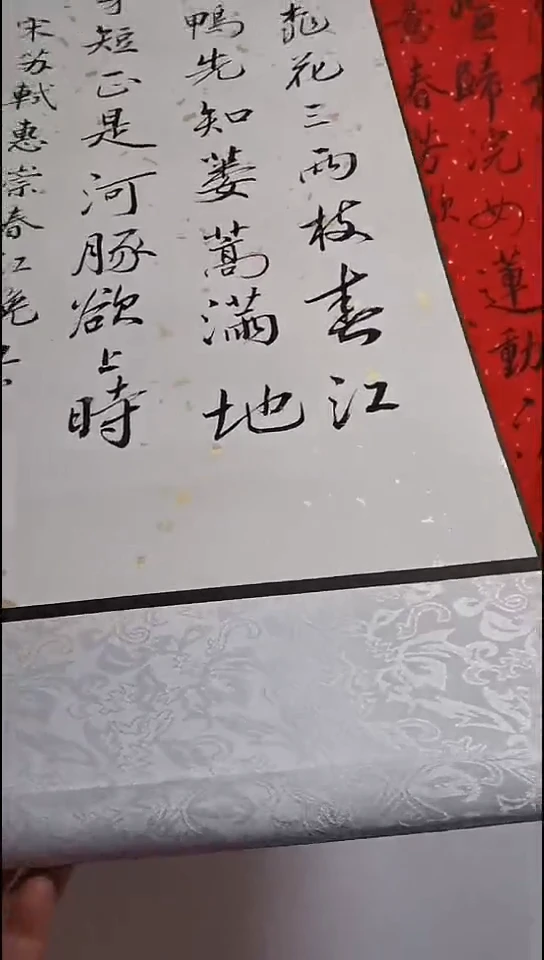 桃花三兩枝春江
鴨先知蔞蒿滿地
短正是河豚欲上時
宋苏軾惠崇春江晚
春芳歇
喧歸浣女蓮動